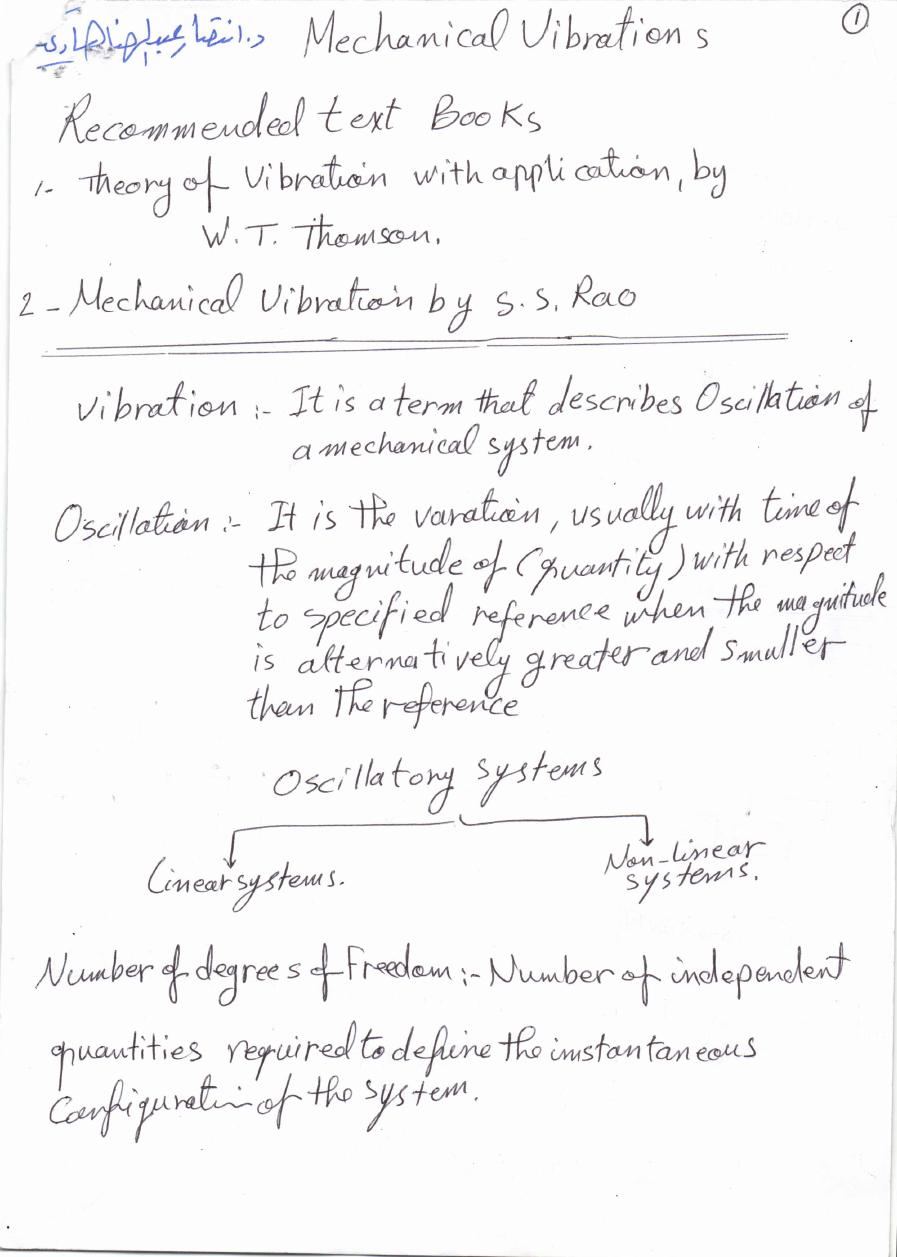 Mechanical Vibrations ①
Recommended text Books
1- Theory of Vibration with application, by
W. T. Thomson.
2 - Mechanical Vibration by S. S. Rao
Vibration :- It is a term that describes Oscillation of
a mechanical system.
Oscillation :- It is the varation, usually with time of
the magnitude of (quantity) with respect
to specified reference when the magnitude
is alternatively greater and smaller
than the reference
Oscillatory systems
Linear systems.
Non-linear
systems.
Number of degrees of Freedom :- Number of independent
quantities required to define the instantaneous
Configuration of the system.